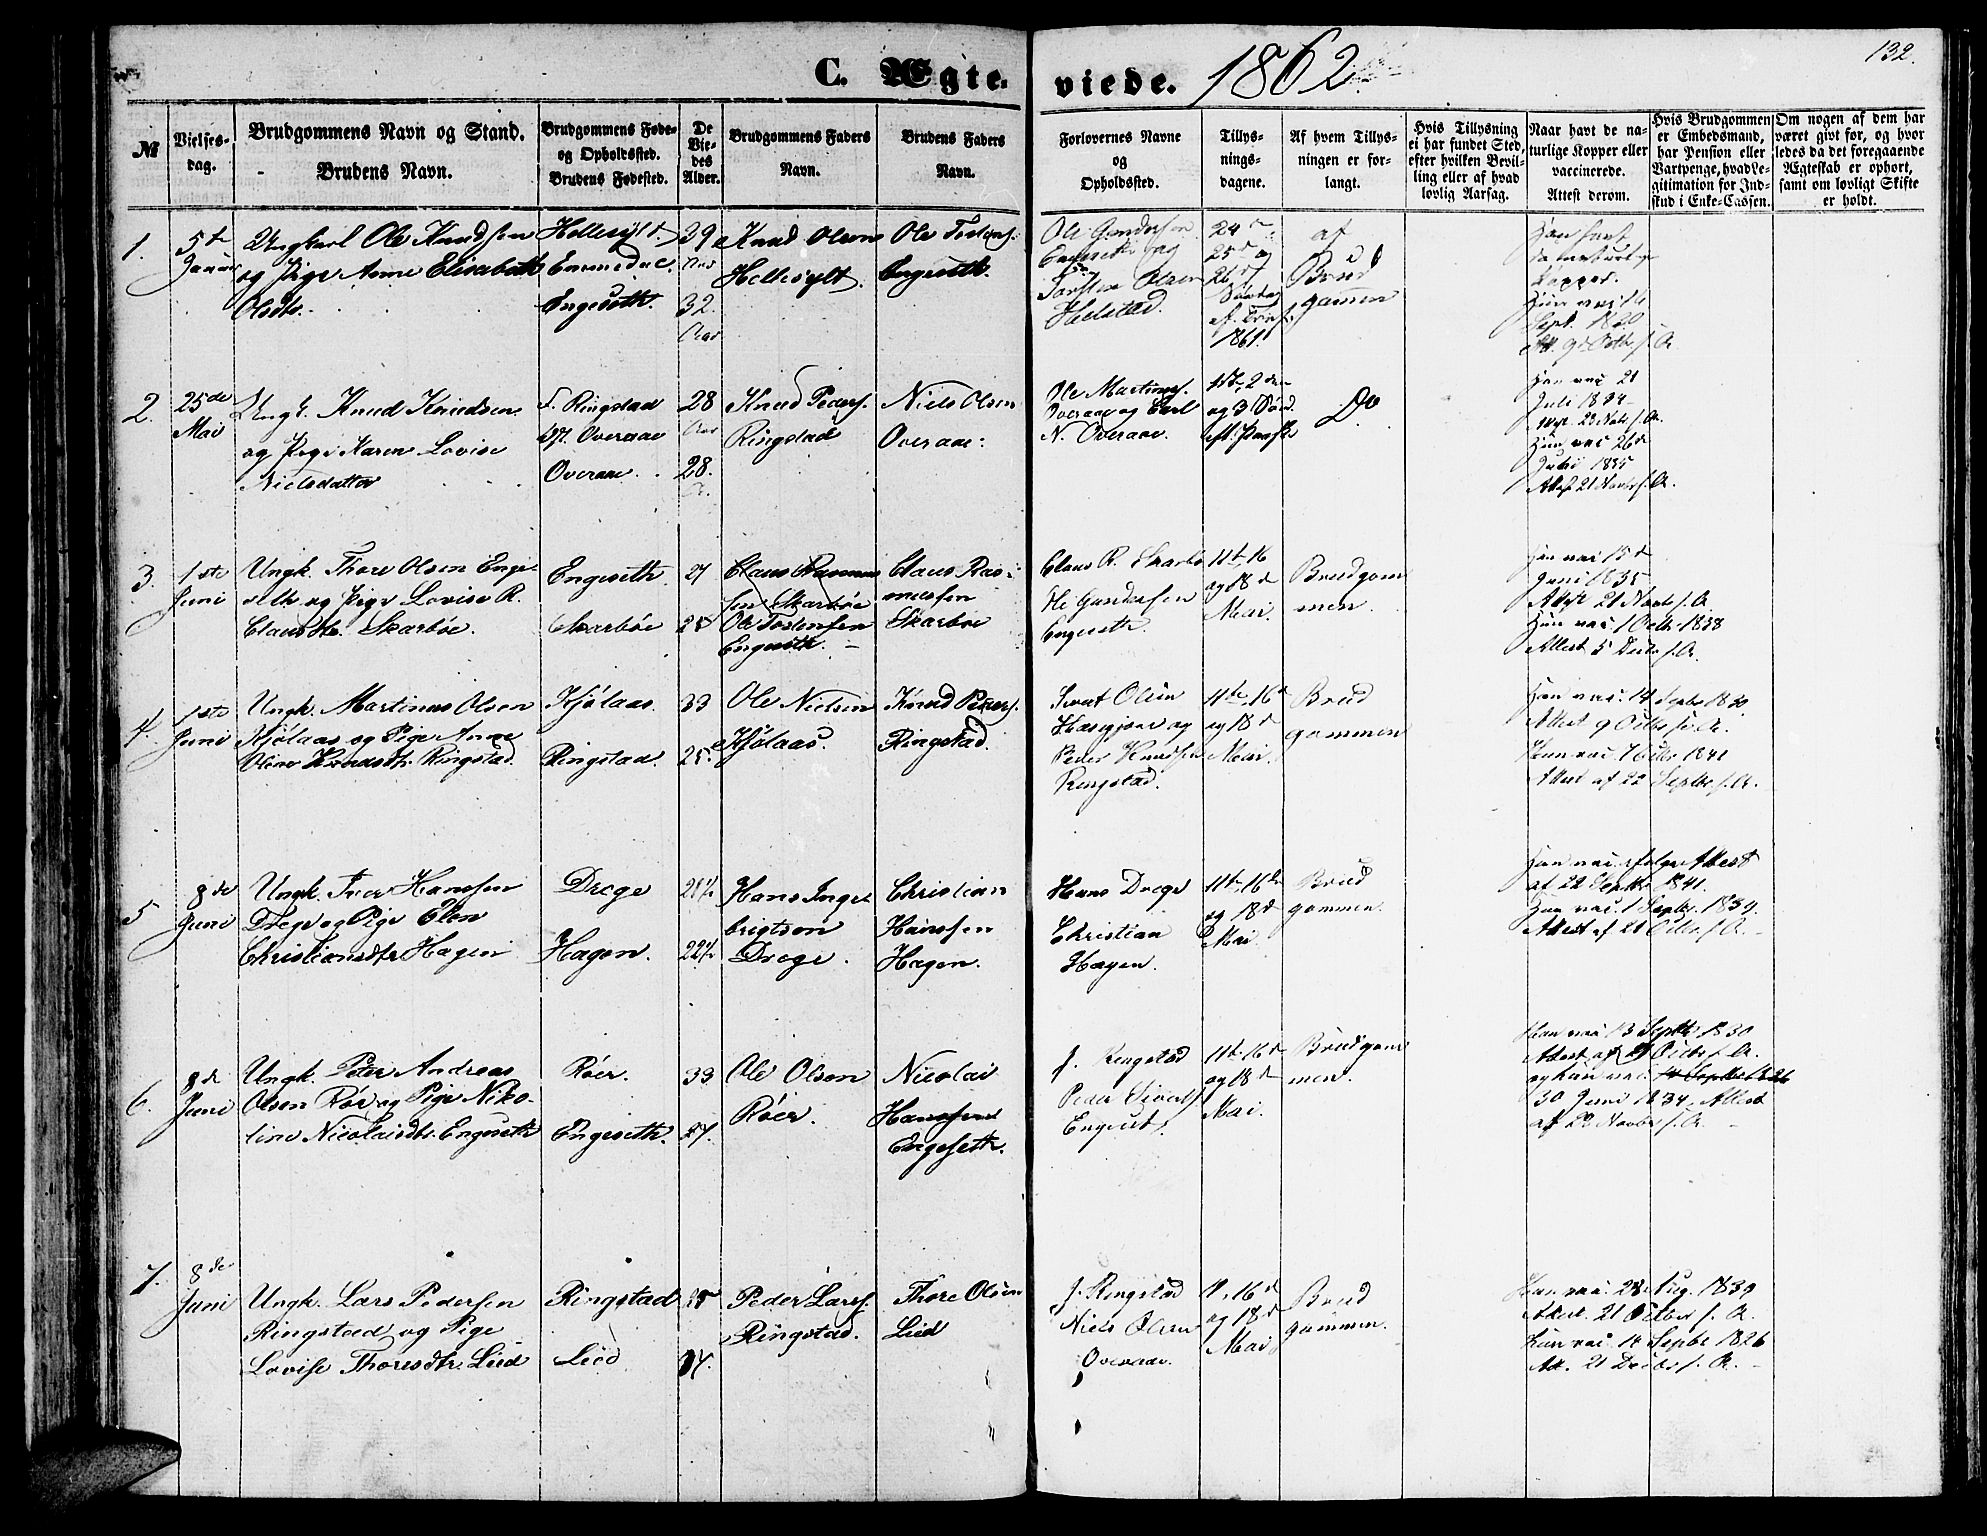 132.
C. Ægte-
viede. 1862
№
Vielses-
dag.
Brudgommens Navn og Stand.
Brudens Navn.
Brudgommens Føde-
og Opholdssted.
Brudens Fødested.
De
Vie-
des
Alder.
Brudgommens Faders
Navn.
Brudens Faders
Navn.
Forlovernes Navne
og
Opholdssted.
Tillys-
nings-
dagene.
Af hvem Tillys-
ningen er for-
langt.
Hvis Tillysning
ei har fundet Sted,
efter hvilken Bevil-
ling eller af hvad
lovlig Aarsag.
Naar havt de na-
turlige Kopper eller
vaccinerede.
Attest derom.
Hvis Brudgommen
er Embedsmand,
har Pension eller
Vartpenge, hvad Le-
gitimation for Ind-
skud i Enke-Cassen.
Om nogen af dem har
været givt før, og hvor
ledes da det foregaaende
Ægteskab er ophørt,
samt om lovligt Skifte
er holdt.
1.
5te
Ungkarl Ole Knudsen
og Pige Anne Elisabeth
Olsdtr.
Hellesylt
Engeseth.
39
Aar
32.
Aar
Knud Olsen
Hellesylt.
Ole
Engeseth.
Ole Gundersen
og
Olsen
24de
25de og
26de
1861.
af
Brud
gommen
Han havt
Kopper.
Hun vac. 14
Sept.
2.
25de
Mai
Ungk. Knud Knudsen
og Pige Karen Lovise
Nielsdatter
f. Ringstad
Opt. Overaae
Overaae
28
Aar
28.
Knud Peders.
Ringstad
Niels Olsen
Overaae
Ole Martinus.
Overaae og Carl
N. Overaae.
1ste, 2den
og 3 Sønd.
eft. Paaske
Do
Han vac. 21
Juli 1834
Hun vac. 26de
Juli 1835
Attest 21 Novbr. f. A.
3.
1ste
Juni
Ungk. Thore Olsen Enge-
seth og Pige Lovise R.
Clausdtr. Skarbøe.
Engeseth
Skarbøe
27
Claus Rasmus
sen Skarbøe
Ole Tostensen
Engeseth.
Claus Ras-
mussen
Skarbøe
Claus R. Skarbø
Ole Gundersen
Engeseth.
11te, 16
og 18de
Mai.
Brudgom
men.
Han vac. 15de
Juni 1835
Attest 21 Novbr. f. A.
Hun vac. 1 Octbr. 1838
Attest 5 Decbr. f. A.
4.
1ste
Juni
Ungk. Martinus Olsen
Kjølaas og Pige Anne
Oline Knudsdtr. Ringstad.
Kjølaas.
Ringstad.
33
25.
Ole Nielsen
Kjølaas.
Knud Peders.
Ringstad.
Olsen
og
Peder Knudsen
Ringstad.
11te, 16de
og 18de
Mai.
Brud
gommen
Han vac. 14 Septbr. 1830
Attest 9 Octbr. f. A.
Hun vac. 7 Octbr. 1841
Attest af 22 Septbr. f. A.
5
8de
Juni
Ungk. Iver Hanssen
Drege og Pige Elen
Christiansdtr. Hagen
Drege
Hagen.
Hans Inge-
brigtsen
Drege.
Christian
Hanssen
Hagen.
Hans Drege
Christian
Hagen.
11te, 16de
og 18de
Mai
Brud
gommen.
Han vac. ifølge Attest
af 22 Septbr. 1841.
Hun vac. 1 Septbr. 1839.
Attest af 21 Octbr. f. A.
6.
8de
Juni
Ungk. Peter Andreas
Olsen Røe og Pige Niko-
line Nicolaisdtr. Engeseth
Røer.
Engeseth.
33.
27.
Ole Olsen
Røer.
Nicolai
Hanssen
Engeseth.
J. Ringstad
Peder Sivert
Engeset.
11te, 16de
og 18de
Mai.
Brudgom
men.
Han vac. 13 Septbr. 1830
Attest af 9 Octbr. f. A.
og hun vac. 14 Septbr. 1826
30 Juni 1834. Attest
af 22 Novbr. f. A.
7.
8de
Juni
Ungk. Lars Pedersen
Ringstad og Pige
Lovise Thoresdtr. Lied
Ringstad
Lied
Peder Larss.
Ringstad.
Thore Olsen
Lied
J. Ringstad
Niels Olsen
Overaae.
11, 16de
og 18de
Mai
Brud
gommen.
Han vac. 28 Aug. 1839
Attest. 21 Octbr f. A.
Hun vac. 14 Septbr 1826
Att. 21 Decbr f. A.